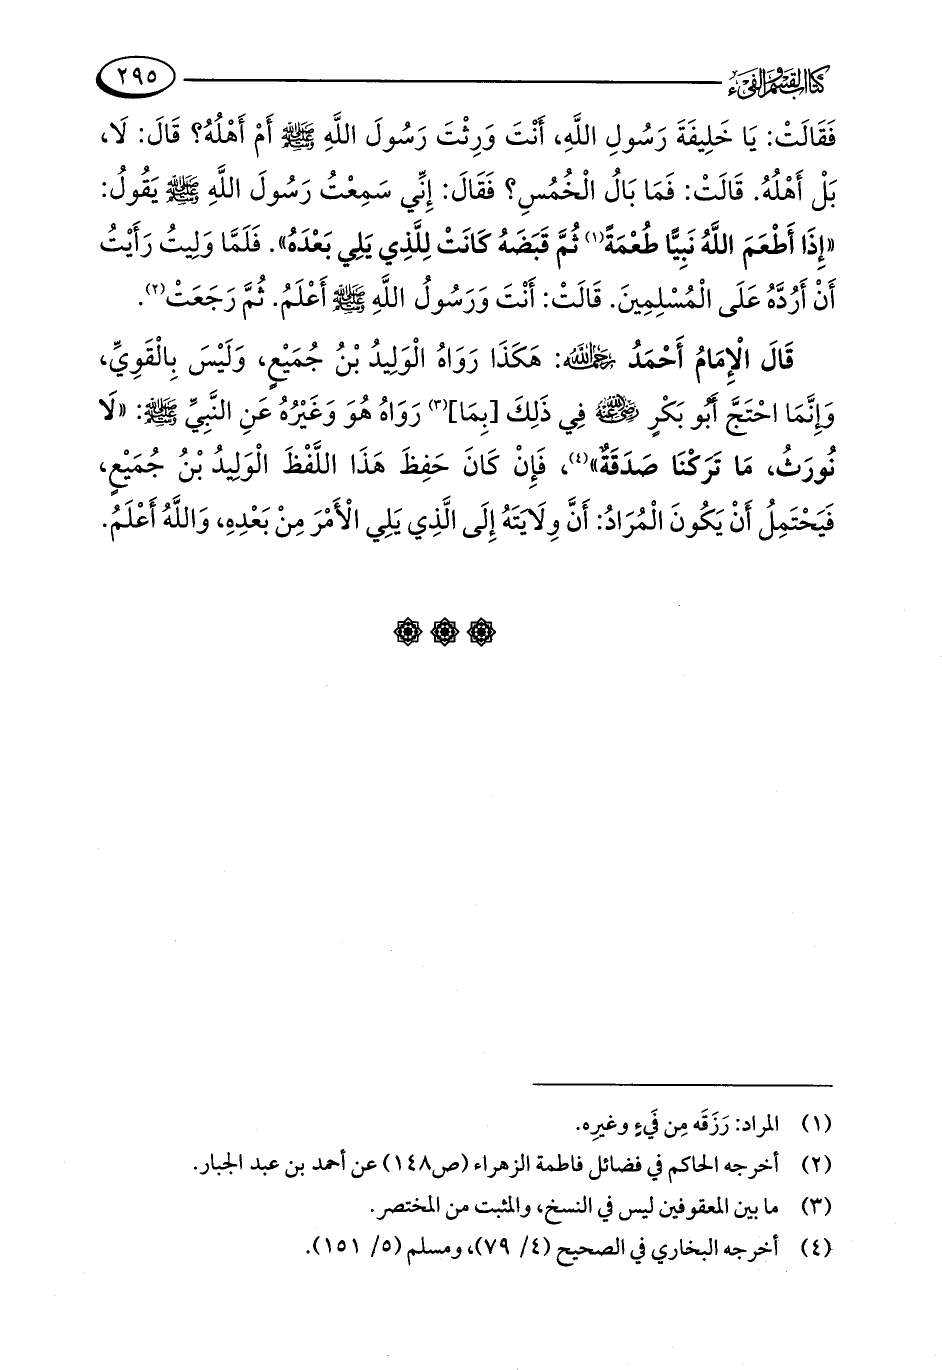 كتاب القسم والفيء ٢٩٥
فَقَالَتْ: يَا خَلِيفَةَ رَسُولِ اللَّهِ، أَنْتَ وَرِثْتَ رَسُولَ اللَّهِ ﷺ أَمْ أَهْلُهُ؟ قَالَ: لَا،
بَلْ أَهْلُهُ. قَالَتْ: فَمَا بَالُ الْخُمُسِ؟ فَقَالَ: إِنِّي سَمِعْتُ رَسُولَ اللَّهِ ﷺ يَقُولُ:
«إِذَا أَطْعَمَ اللَّهُ نَبِيًّا طُعْمَةً(١) ثُمَّ قَبَضَهُ كَانَتْ لِلَّذِي يَلِي بَعْدَهُ». فَلَمَّا وَلِيتُ رَأَيْتُ
أَنْ أَرُدَّهُ عَلَى الْمُسْلِمِينَ. قَالَتْ: أَنْتَ وَرَسُولُ اللَّهِ ﷺ أَعْلَمُ. ثُمَّ رَجَعَتْ(٢).
قَالَ الْإِمَامُ أَحْمَدُ رحمه الله: هَكَذَا رَوَاهُ الْوَلِيدُ بْنُ جُمَيْعٍ، وَلَيْسَ بِالْقَوِيِّ،
وَإِنَّمَا احْتَجَّ أَبُو بَكْرٍ رضي الله عنه فِي ذَلِكَ [بِمَا](٣) رَوَاهُ هُوَ وَغَيْرُهُ عَنِ النَّبِيِّ ﷺ: «لَا
نُورَثُ، مَا تَرَكْنَا صَدَقَةٌ»(٤)، فَإِنْ كَانَ حَفِظَ هَذَا اللَّفْظَ الْوَلِيدُ بْنُ جُمَيْعٍ،
فَيَحْتَمِلُ أَنْ يَكُونَ الْمُرَادُ: أَنَّ وِلَايَتَهُ إِلَى الَّذِي يَلِي الْأَمْرَ مِنْ بَعْدِهِ، وَاللَّهُ أَعْلَمُ.
(١) المراد: رَزَقَه مِن فَيْءٍ وغيرِه.
(٢) أخرجه الحاكم في فضائل فاطمة الزهراء (ص١٤٨) عن أحمد بن عبد الجبار.
(٣) ما بين المعقوفين ليس في النسخ، والمثبت من المختصر.
(٤) أخرجه البخاري في الصحيح (٤/ ٧٩)، ومسلم (٥/ ١٥١).